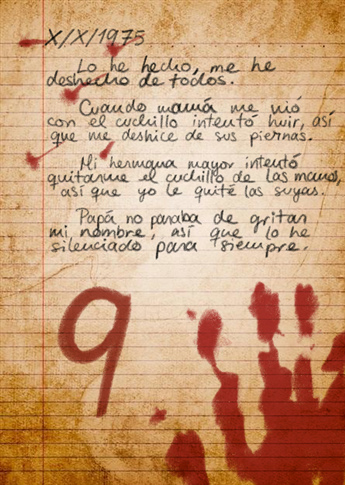 X/X/1975
Lo he hecho, me he
deshecho de todos.
Cuando mamá me vió
con el cuchillo intentó huir, así
que me deshice de sus piernas.
Mi hermana mayor intentó
quitarme el cuchillo de las manos,
así que yo le quité las suyas.
Papá no paraba de gritar
mi nombre, así que lo he
silenciado para siempre.
9